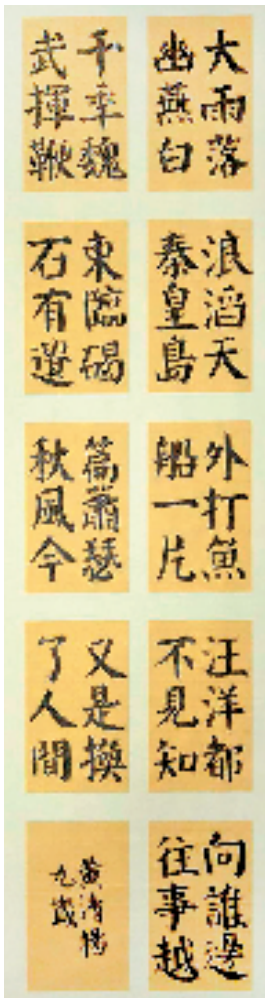 大雨落
幽燕白
浪滔天
秦皇島
外打魚
船一片
汪洋都
不見知
向誰邊
往事越
千年魏
武揮鞭
東臨碣
石有遺
篇蕭瑟
秋風今
又是換
了人間
黃清
九歲